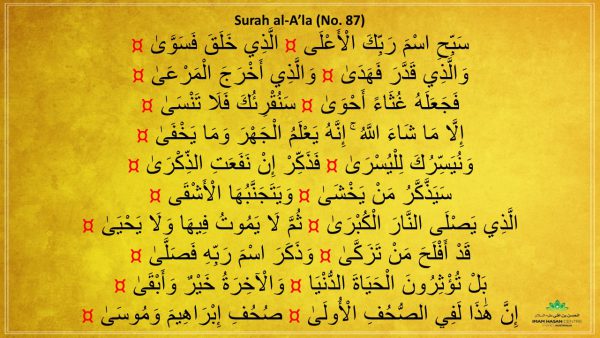 Surah al-A’la (No. 87)
سَبِّحِ اسْمَ رَبِّكَ الْأَعْلَى ¤ الَّذِي خَلَقَ فَسَوَّىٰ ¤
وَالَّذِي قَدَّرَ فَهَدَىٰ ¤ وَالَّذِي أَخْرَجَ الْمَرْعَىٰ ¤
فَجَعَلَهُ غُثَاءً أَحْوَىٰ ¤ سَنُقْرِئُكَ فَلَا تَنْسَىٰ ¤
إِلَّا مَا شَاءَ اللَّهُ ۚ إِنَّهُ يَعْلَمُ الْجَهْرَ وَمَا يَخْفَىٰ ¤
وَنُيَسِّرُكَ لِلْيُسْرَىٰ ¤ فَذَكِّرْ إِنْ نَفَعَتِ الذِّكْرَىٰ ¤
سَيَذَّكَّرُ مَنْ يَخْشَىٰ ¤ وَيَتَجَنَّبُهَا الْأَشْقَى ¤
الَّذِي يَصْلَى النَّارَ الْكُبْرَىٰ ¤ ثُمَّ لَا يَمُوتُ فِيهَا وَلَا يَحْيَىٰ ¤
قَدْ أَفْلَحَ مَنْ تَزَكَّىٰ ¤ وَذَكَرَ اسْمَ رَبِّهِ فَصَلَّىٰ ¤
بَلْ تُؤْثِرُونَ الْحَيَاةَ الدُّنْيَا ¤ وَالْآخِرَةُ خَيْرٌ وَأَبْقَىٰ ¤
إِنَّ هَٰذَا لَفِي الصُّحُفِ الْأُولَىٰ ¤ صُحُفِ إِبْرَاهِيمَ وَمُوسَىٰ ¤
IMAM HASAN CENTRE